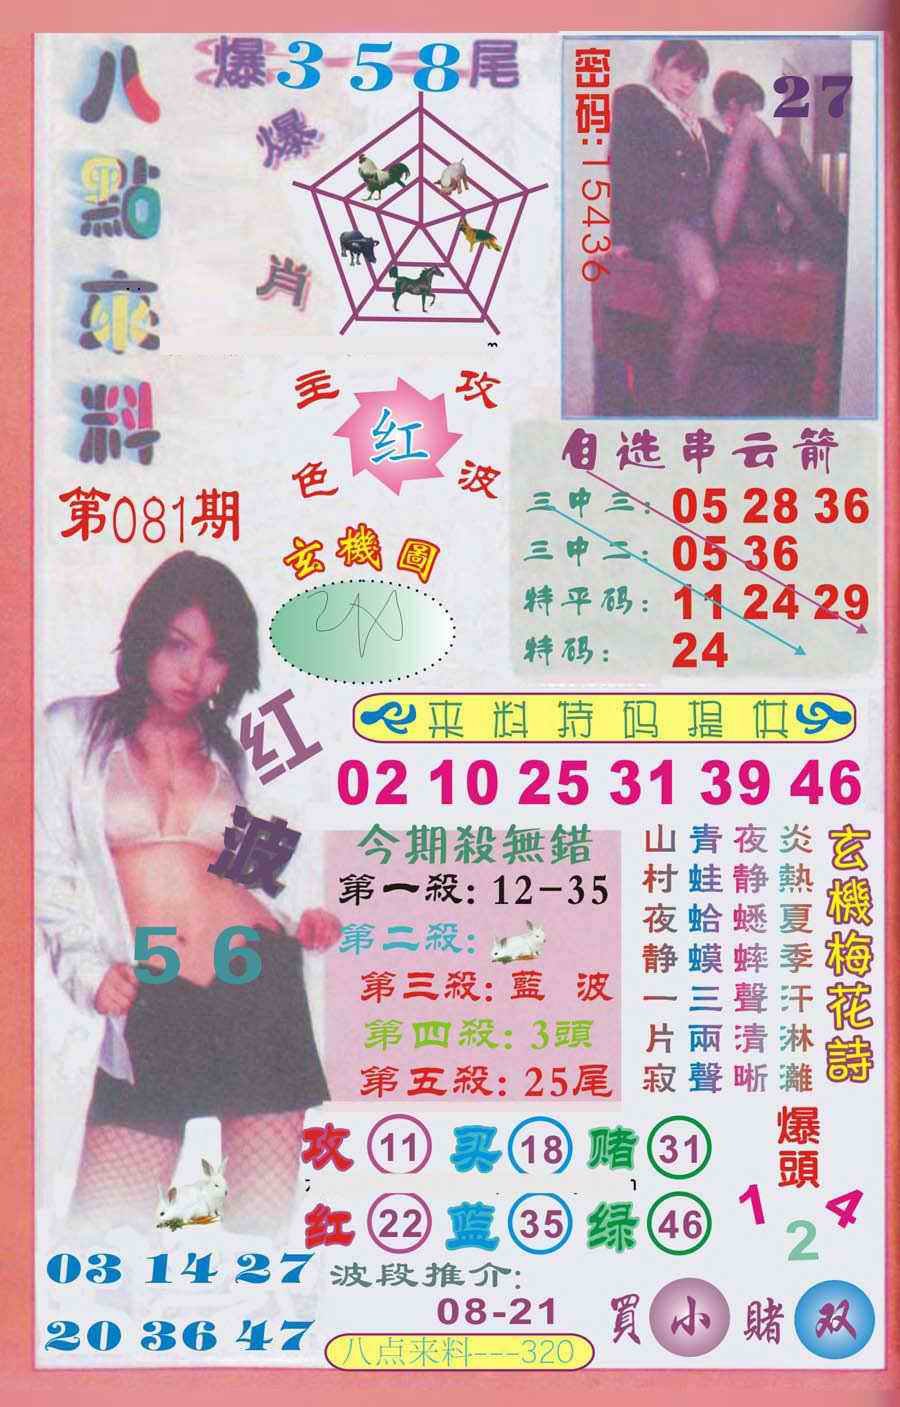 八點來料
爆358尾
爆肖
密码:15436
27
主攻
红
色波
第081期
玄機圖
自选串云箭
三中三: 05 28 36
三中二: 05 36
特平码: 11 24 29
特码: 24
来料特码提供
02 10 25 31 39 46
红波
56
今期殺無錯
第一殺: 12-35
第二殺:
第三殺: 藍波
第四殺: 3頭
第五殺: 25尾
玄機梅花詩
炎熱夏季汗淋灕
夜静蟋蟀聲清晰
青蛙蛤蟆三兩聲
山村夜静一片寂
攻 11 买 18 赌 31
红 22 蓝 35 绿 46
爆頭
1 2 4
03 14 27
20 36 47
波段推介:
08-21
買小賭双
八点来料---320